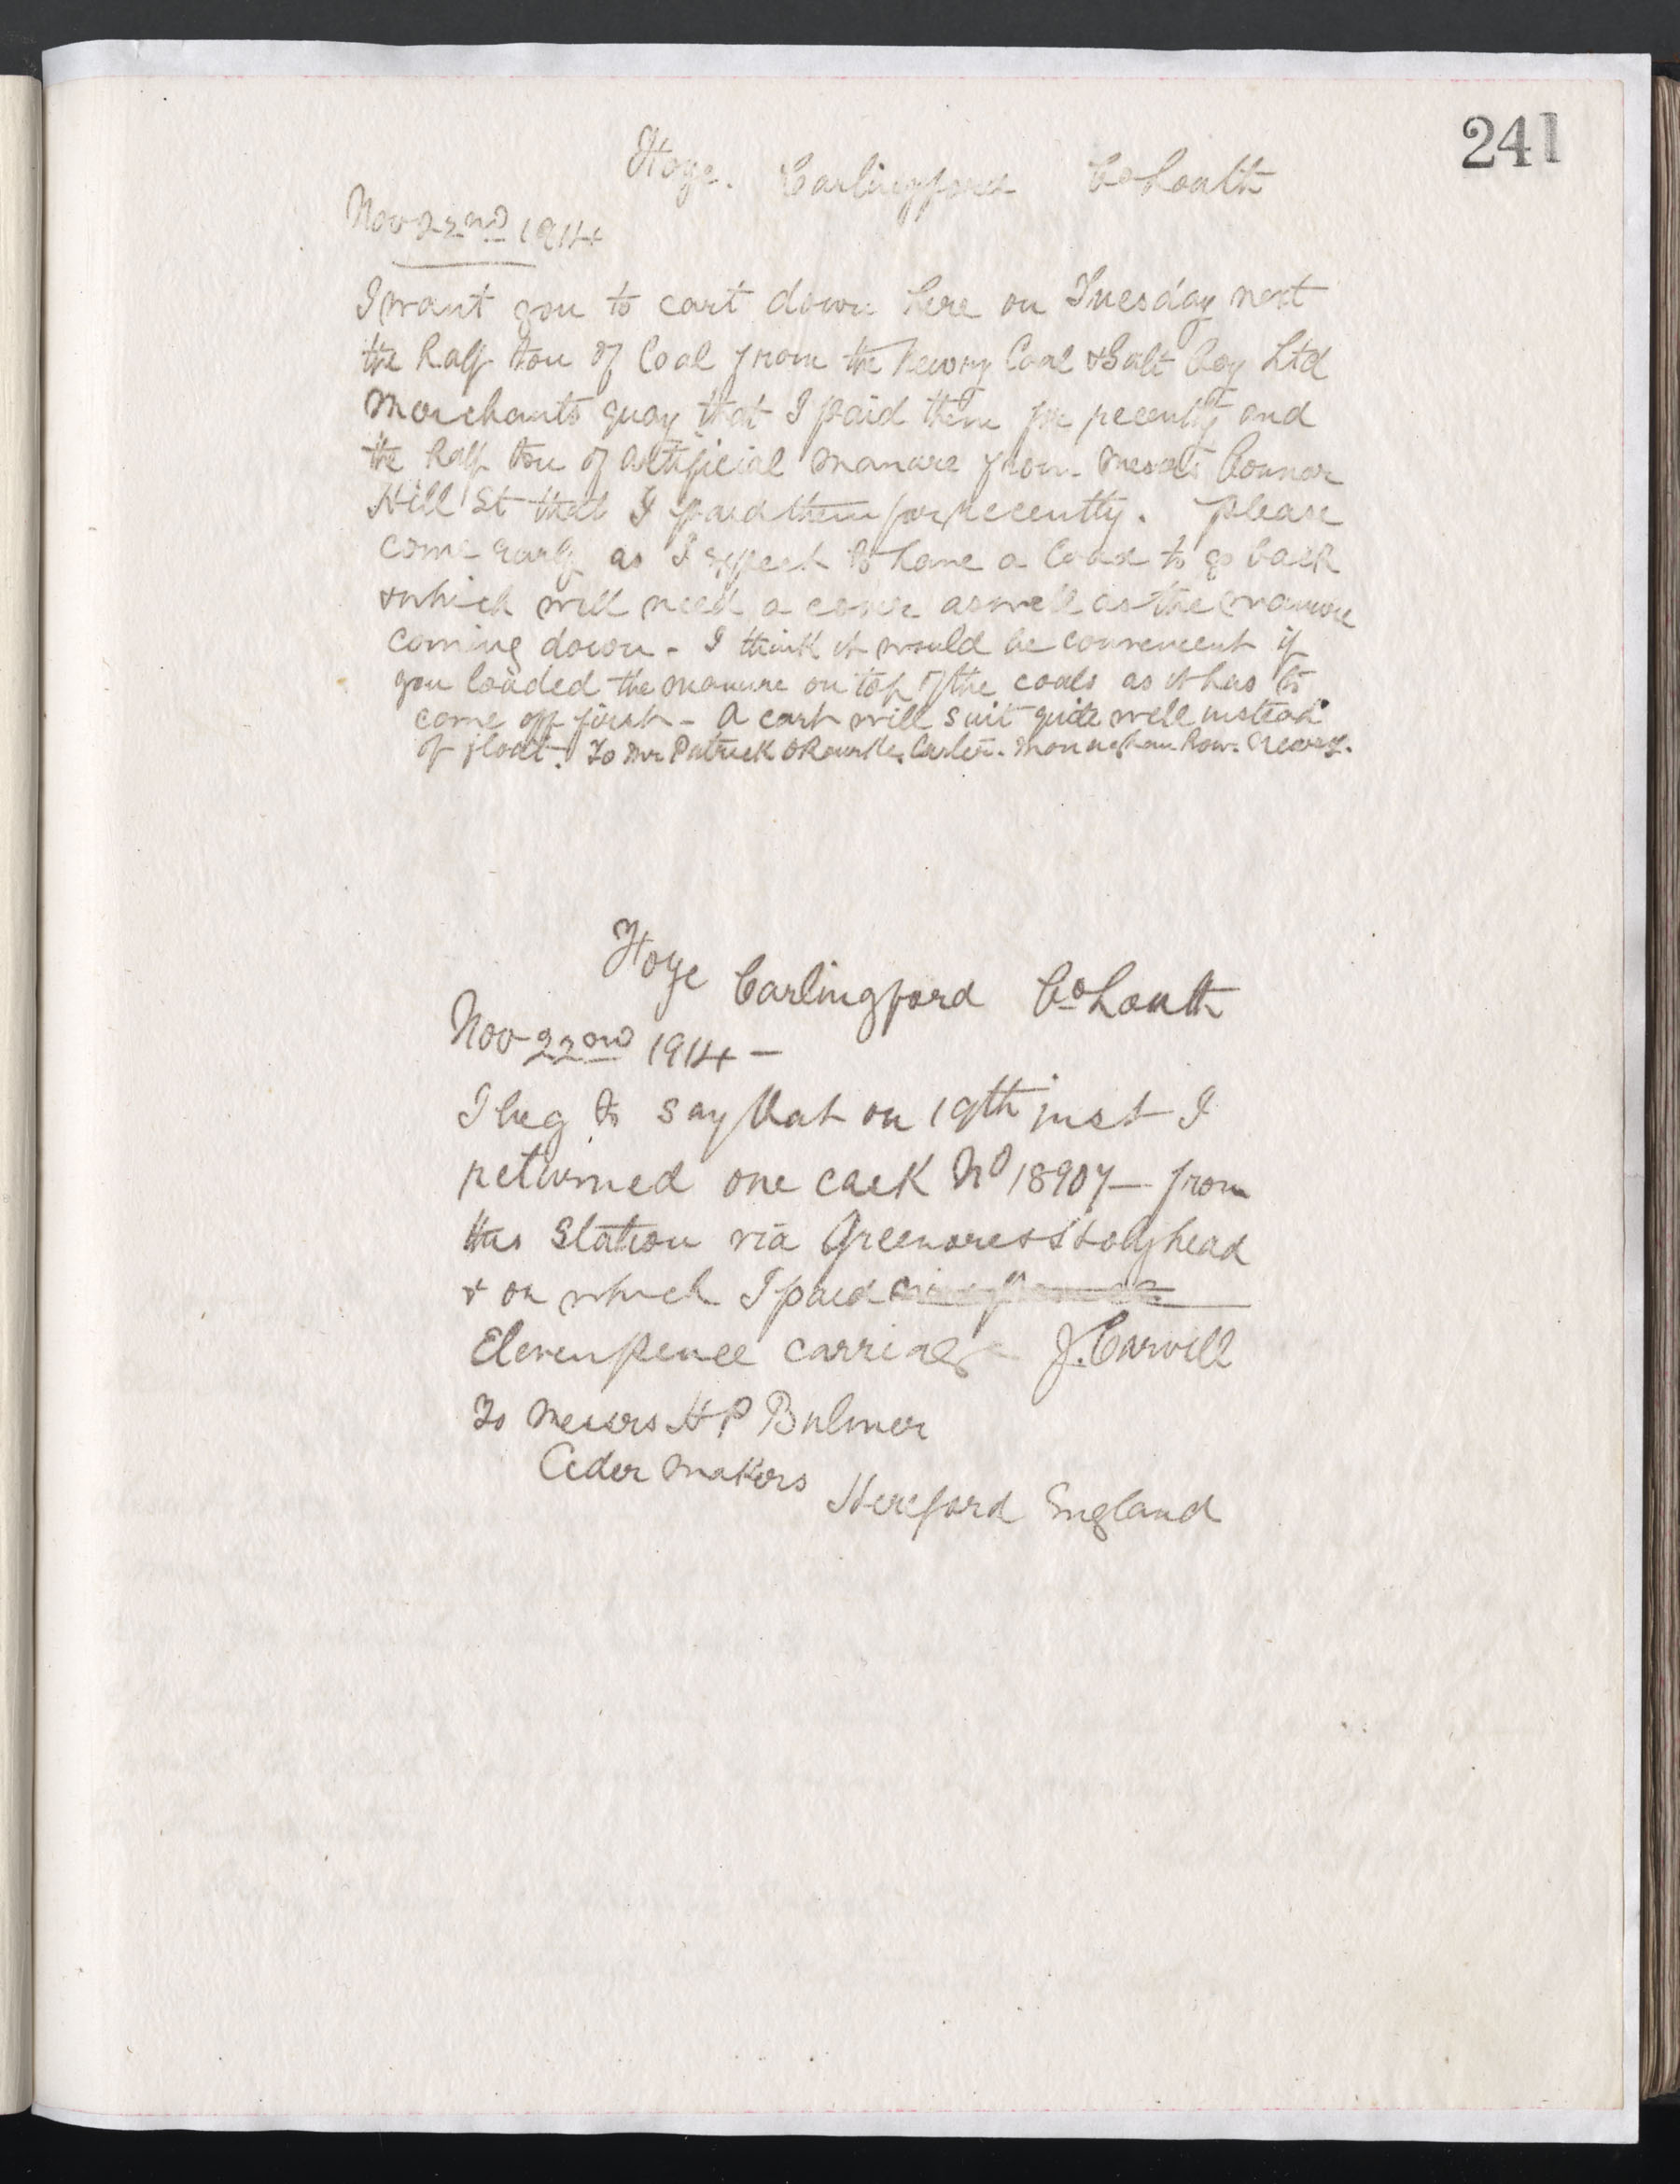 241
Hoye. Carlingford Co Louth
Nov 22nd 1914
I want you to cart down here on Tuesday next
the half ton of Coal from the Newry Coal & Salt Coy Ltd
Merchants quay that I paid them for recently and
the half ton of artificial manure from Messrs Connor
Hill St that I paid them for recently. please
come early as I expect to have a load to go back
& which will need a cover aswell as the manure
coming down - I think it would be convenient if
you loaded the manure on top of the coals as it has to
come off first - A cart will suit quite well instead
of float. To Mr Patrick O Rourke. Carter. Monaghan Row. Newry.
Hoye Carlingford Co Louth
Nov 22nd 1914 -
I beg to say that on 19th inst I
returned one cask No 18907 - from
this Station via Greenore & Holyhead
& on which I paid
Elevenpence carriage J. Carvill
To Messrs H P Bulmer
Cider Makers
Hereford England